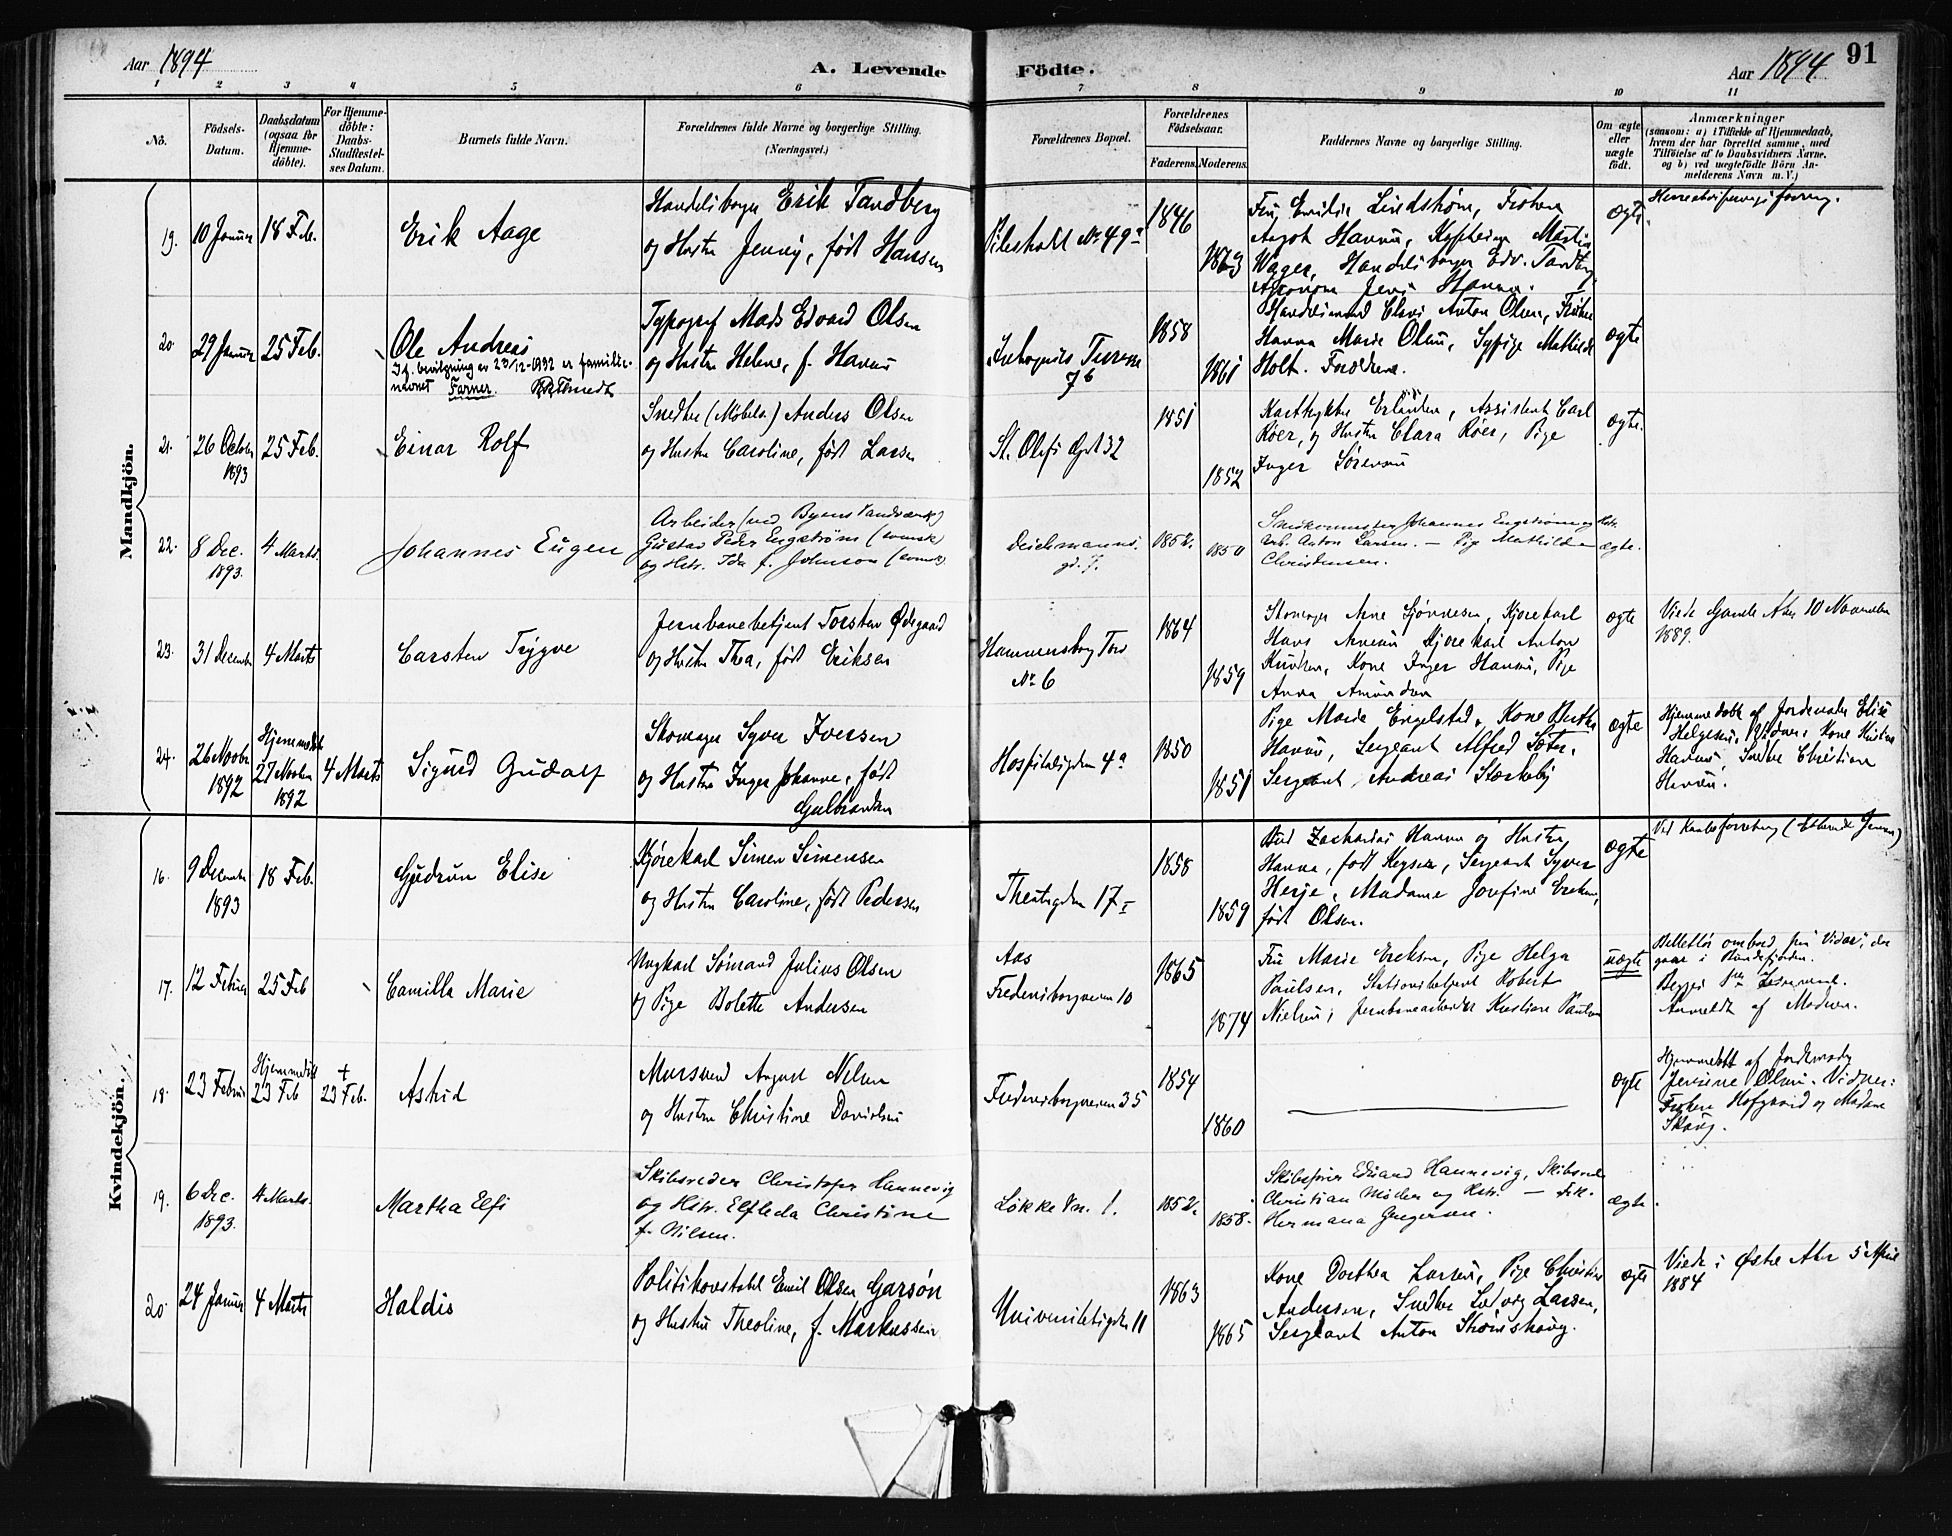 Aar 1894
A. Levende
Födte.
Aar 1894
91
1 2 3 4 5 6 7 8 9 10 11
Nö.
Födsels-
Datum.
Daabsdatum
(ogsaa for
Hjemme-
döbte).
For Hjemme-
döbte:
Daabs-
Stadfæstel-
ses Datum.
Barnets fulde Navn.
Forældrenes fulde Navne og borgerlige Stilling.
(Næringsvei.)
Forældrenes Bopæl.
Forældrenes
Födselsaar.
Faderens.
Moderens.
Faddernes Navne og borgerlige Stilling.
Om ægte
eller
uægte
födt.
Anmærkninger
(saasom: a) i Tilfælde af Hjemmedaab,
hvem der har forrettet samme, med
Tilföielse af to Daabsvidners Navne,
og b) ved uægtefödte Börn An-
melderens Navn m. V.)
Mandkjön.
19.
10 Januar
18 Feb.
Erik Aage
Handelsborger Erik Tandberg
og Hustru Jenny, født Hansen
Pilestræde No 49
1846
1873
Fru Emilie Lindstrøm, Frøken
Aagot Hansen, Martin
Wager, Handelsborger Edv. Tandberg
Agronom Jens Hansen.
ægte.
20.
29 Januar
25 Feb.
Ole Andreas
If. bevilgning av 23/12-1932 er familie-
navnet Farner.
Typograf Mads Edvard Olsen
og Hustru Helene, f. Hansen
7 b
1858
1861
Anton Olsen, Frøken
Hanna Marie Olsen, Sypige Mathilde
Holt. Forældrene.
ægte
21.
26 October
1893
25 Feb.
Einar Rolf
Snedker (Møbel) Anders Olsen
og Hustru Caroline, født Larsen
St. Olafs Gd. 32
1851
1852
Erlandsen, Assistent Carl
Røer, og Hustru Clara Røer, Pige
Inger Sørensen
ægte.
22.
8 Dec.
1893.
4 Marts.
Johannes Eugen
Arbeider (ved Byens Vandværk)
Gustav Peder Engstrøm (svensk)
og Hstr. Ida f. Johnson (svensk)
Deichmanns-
gd. 7.
1852.
1850
Johannes Engstrøm og Hstr.
Arb. Anton Larsen. — Pige Mathilde
Christensen.
ægte.
23.
31 December
4 Marts
Carsten Trygve
Jernbanebetjent Torsten Ødegaard
og Hustru Thea, født Eriksen
Hammersborg Torv
No 6
1864
1859
Skomager Arne Gjønnesen, Kjørekarl
Hans Arnesen, Kjørekarl Anton
Knudsen, Kone Inger Hansen, Pige
Anna Amundsen
ægte
Viede Gamle Aker 10 November
1889.
24.
26 Novbr
1892
Hjemmedøbt
27 Novbr
1892
4 Marts
Sigurd Gudolf
Skomager Syver Iversen
og Hustru Inger Johanne, født
Gulbrandsen
Hospitalsgaden 4a
1850
1851
Pige Marie Engelstad, Kone Berthe
Hansen, Sergeant Alfred Sæter,
Sergeant Andreas Stærkeby
ægte
Hjemmedøbt af Jordemoder Elise
Helgesen, Vidner: Kone Kristine
Hansen, Snedker Christian
Hansen.
Kvindekjön.
16.
9 December
1893
18 Feb.
Gudrun Elise
Kjørekarl Simen Simensen
og Hustru Caroline, født Pedersen
Theatergaden 17 I
1858
1859
Bud Zacharias Hansen og Hustru
Hanna, født Keyser, Sergeant Syver
Herje, Madame Josefine Eriksen,
født Olsen.
ægte
17.
12 Februar
25 Feb
Camilla Marie
Ungkarl Sømand Julius Olsen
og Pige Bolette Andersen
Aas
Fredensborgveien 10
1865
1874
Fru Marie Eriksen, Pige Helga
Paulsen, Stationsbetjent Robert
Nielsen, Jernbanearbeider Kristian Paulsen
uægte
Billettør ombord paa "Vidar", der
gaar i Bundefjorden.
Begges 1ste Lejermaal.
Anmeldt af Moderen.
18.
23 Februar
Hjemmedøbt
23 Feb
+
23 Feb.
Astrid
Mursvend August Nilsen
og Hustru Christine Davidsen
Fredensborgveien 35
1854
1860
ægte
Hjemmedøbt af Jordemoder
Jensine Olsen. Vidner:
Frøken Hofgaard og Madame
Skaug.
19.
6 Dec.
1893.
4 Marts.
Martha Elfi
Skibsreder Christofer Hannevig
og Hstr. Elfleda Christine
f. Nilsen.
Løkke Vn. 1.
1852.
1858.
Skibsfører Edvard Hannevig, Skibsreder
Christian Møller og Hstr. — Frk.
Hermana Gregersen.
ægte.
20.
24 Januar
4 Marts
Haldis
Politikonstabel Emil Olsen Garsön
og Hustru Theoline, f. Markussen.
Universitetsgaden 11
1863
1865
Kone Dorthea Larsen, Pige Christine
Andersen, Snedker Ludvig Larsen,
Sergeant Anton
ægte
Viede i Østre Aker 5 April
1884